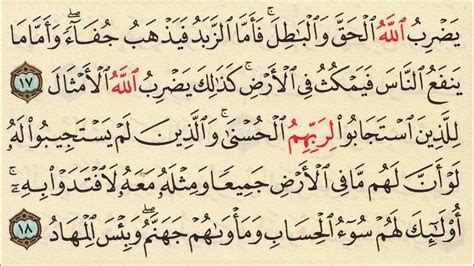 يَضْرِبُ اللَّهُ الْحَقَّ وَالْبَاطِلَ ۚ فَأَمَّا الزَّبَدُ فَيَذْهَبُ جُفَاءً ۖ وَأَمَّا مَا
يَنفَعُ النَّاسَ فَيَمْكُثُ فِي الْأَرْضِ ۚ كَذَٰلِكَ يَضْرِبُ اللَّهُ الْأَمْثَالَ ١٧
لِلَّذِينَ اسْتَجَابُوا لِرَبِّهِمُ الْحُسْنَىٰ ۚ وَالَّذِينَ لَمْ يَسْتَجِيبُوا لَهُ
لَوْ أَنَّ لَهُم مَّا فِي الْأَرْضِ جَمِيعًا وَمِثْلَهُ مَعَهُ لَافْتَدَوْا بِهِ ۚ
أُولَٰئِكَ لَهُمْ سُوءُ الْحِسَابِ وَمَأْوَاهُمْ جَهَنَّمُ ۖ وَبِئْسَ الْمِهَادُ ١٨